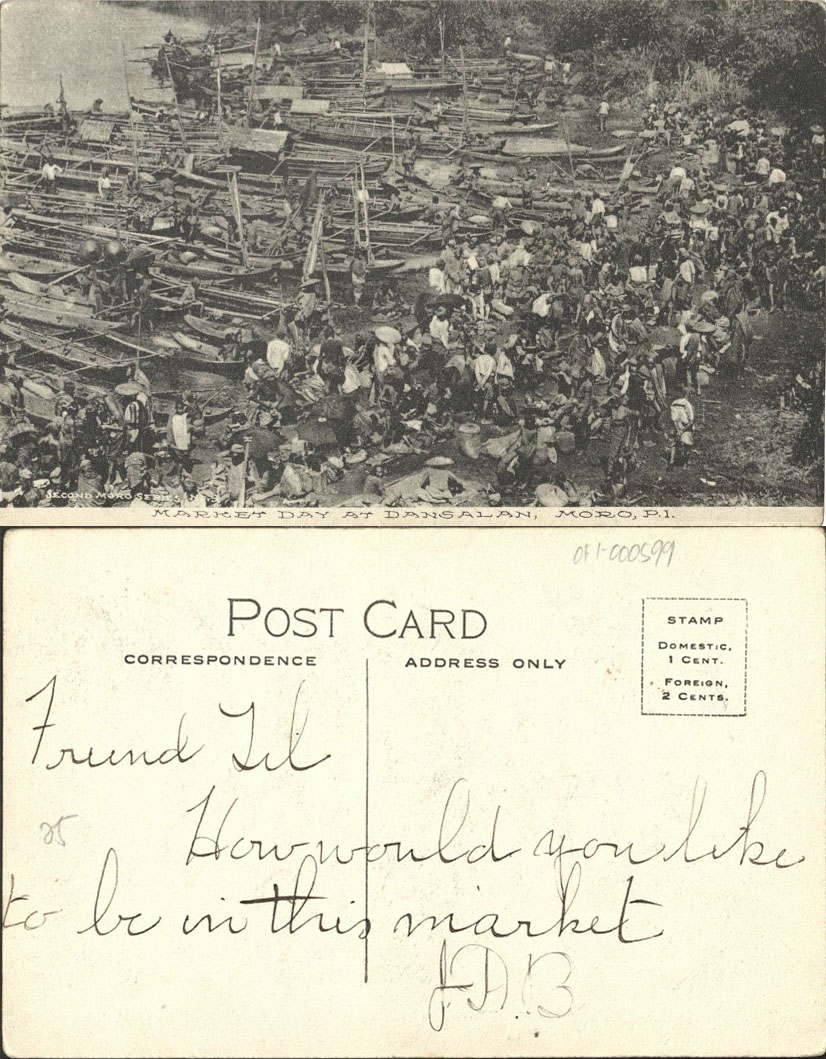 SECOND MORO SERIES, No. 5
MARKET DAY AT DANSALAN, MORO, P.I.
OF1-000599
POST CARD
CORRESPONDENCE
ADDRESS ONLY
STAMP
DOMESTIC,
1 CENT.
FOREIGN,
2 CENTS.
Friend Lil
25
How would you like
to be in this market
J.D.B